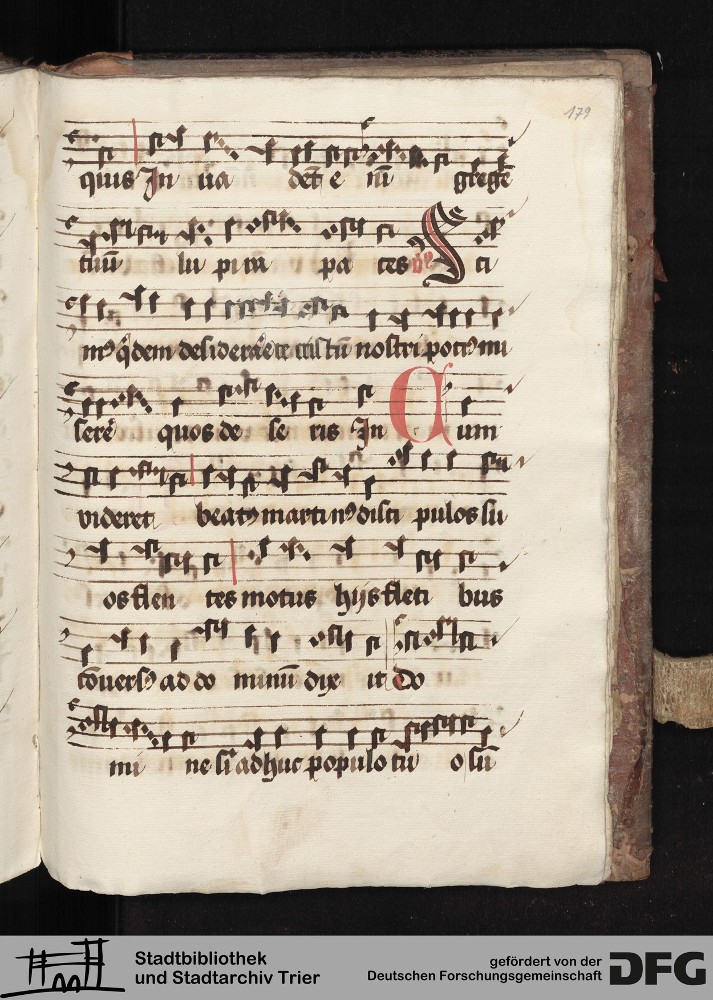 179
quis In ua det e ni gregē
tuū lu pi ra pa ces Sci
mꝰ q̄dem desiderare te nostri potiꝰ mi
sere quos de se ris In Cum
videret beatꝰ martinꝰ disci pulos su
os flen tes motus hijs fleti bus
cōuersꝰ ad do minū dix it Do
mi ne si adhuc populo tu o sū
Stadtbibliothek
und Stadtarchiv Trier
gefördert von der
Deutschen Forschungsgemeinschaft
DFG